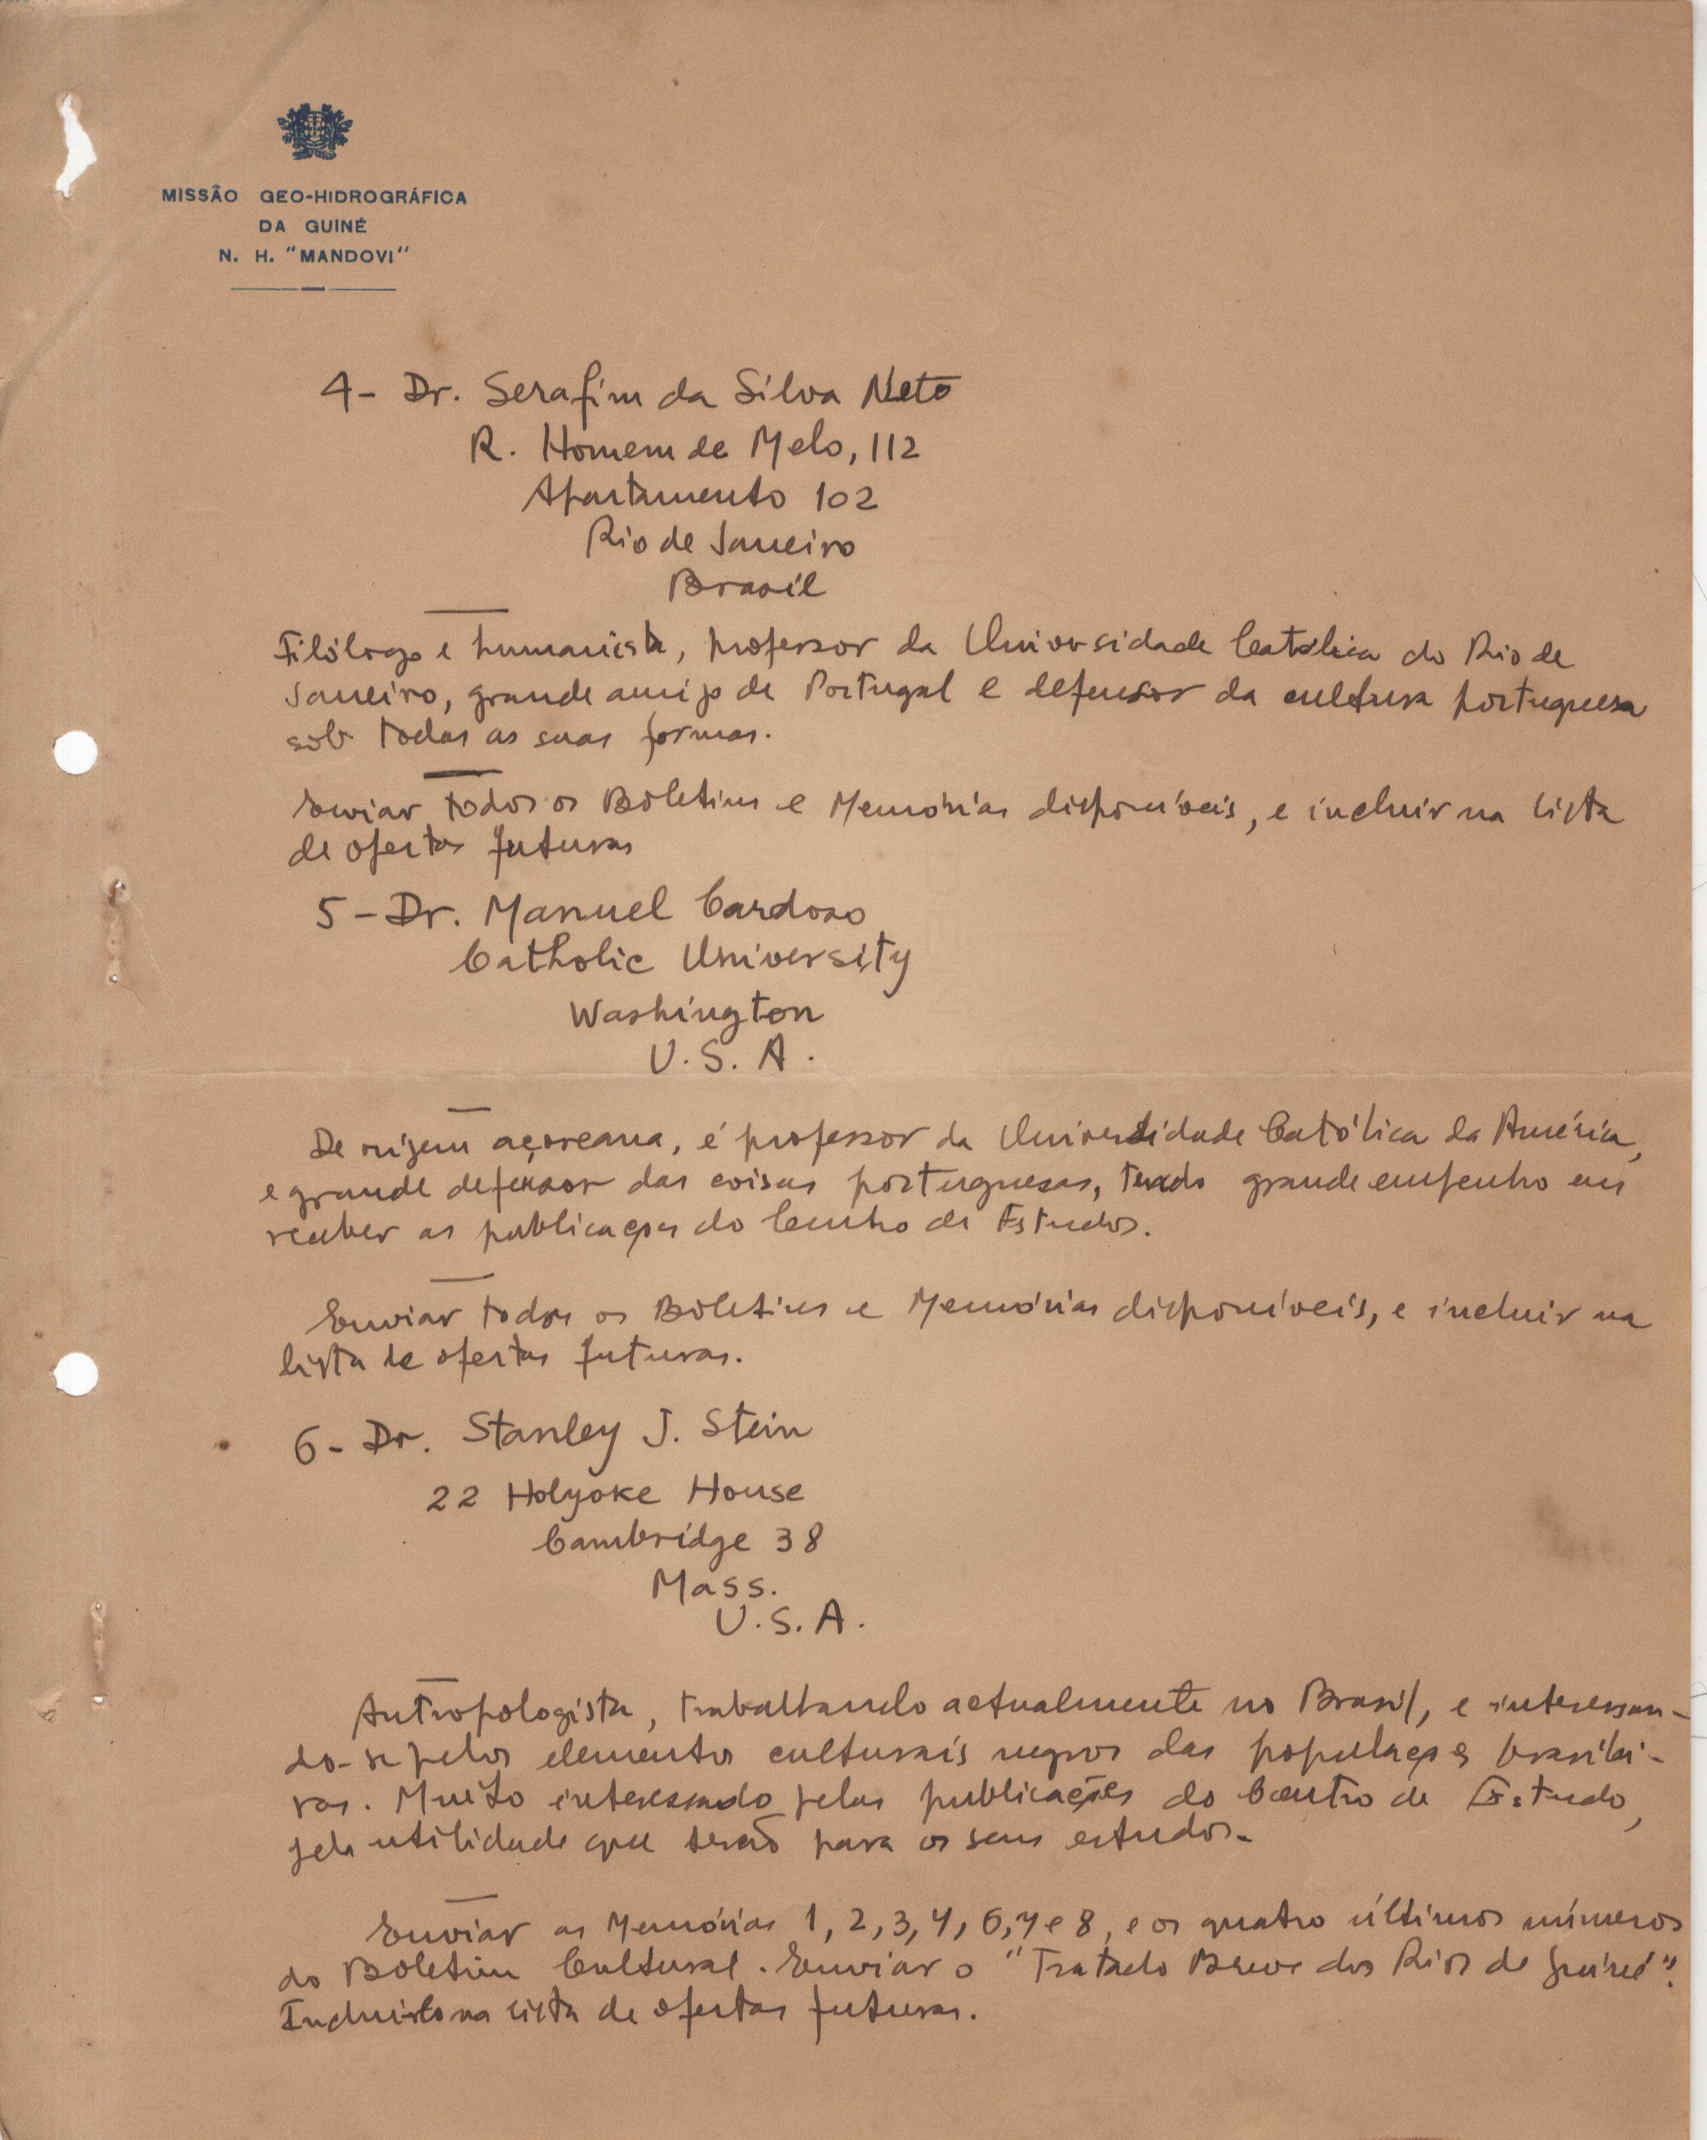 MISSÃO GEO-HIDROGRÁFICA
DA GUINÉ
N. H. "MANDOVI"
4 - Dr. Serafim da Silva Neto
R. Homem de Melo, 112
Apartamento 102
Rio de Janeiro
Brasil
Filólogo e humanista, professor da Universidade Católica do Rio de
Janeiro, grande amigo de Portugal e defensor da cultura portuguesa
sob todas as suas formas.
Enviar todos os Boletins e Memórias disponíveis, e incluir na lista
de ofertas futuras
5 - Dr. Manuel Cardoso
Catholic University
Washington
U.S.A.
De origem açoreana, é professor da Universidade Católica da América,
e grande defensor das coisas portuguesas, tendo grande empenho em
receber as publicações do Centro de Estudos.
Enviar todos os Boletins e Memórias disponíveis, e incluir na
lista de ofertas futuras.
6 - Dr. Stanley J. Stein
22 Holyoke House
Cambridge 38
Mass.
U.S.A.
Antropologista, trabalhando actualmente no Brasil, e interessan-
do-se pelos elementos culturais negros das populações brasilei-
ras. Muito interessado pelas publicações do Centro de Estudo,
pela utilidade que terão para os seus estudos.
Enviar as Memórias 1, 2, 3, 4, 6, 7 e 8, e os quatro últimos números
do Boletim Cultural. Enviar o "Tratado Breve dos Rios de Guiné".
Incluí-lo na lista de ofertas futuras.